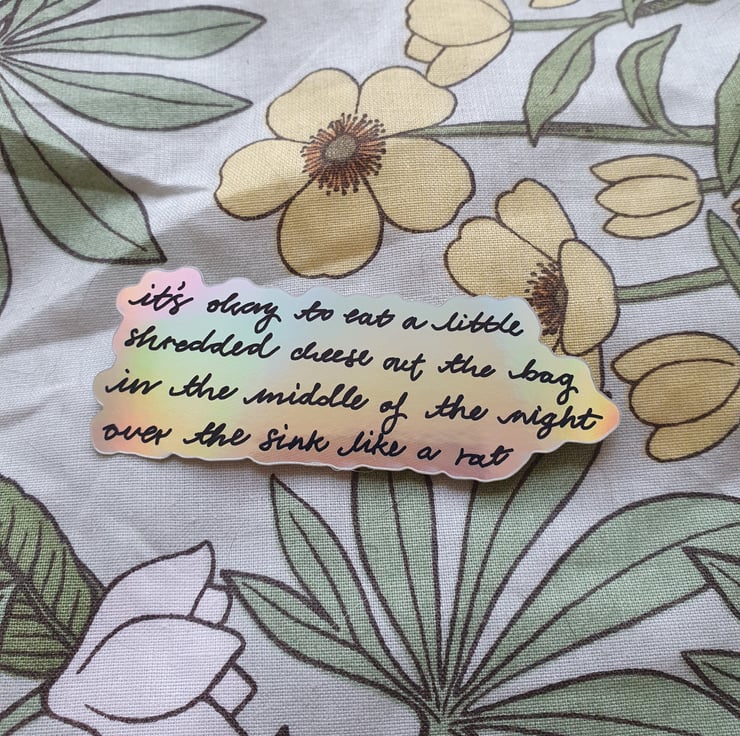 it's okay to eat a little
shredded cheese out the bag
in the middle of the night
over the sink like a rat